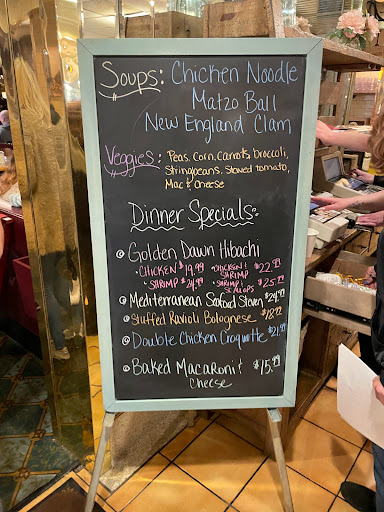 Soups: Chicken Noodle
Matzo Ball
New England Clam
Veggies: Peas, Corn, Carrots, broccoli,
Stringbeans, Stewed tomato,
Mac & Cheese
Dinner Specials:
Golden Dawn Hibachi
• CHICKEN $19.99 • CHICKEN & SHRIMP $22.99
• SHRIMP $24.99 • SHRIMP & SCALLOPS $25.99
Mediterranean Seafood Stew $24.99
Stuffed Ravioli Bolognese $18.99
Double Chicken Croquette $21.99
Baked Macaroni & $15.99
Cheese